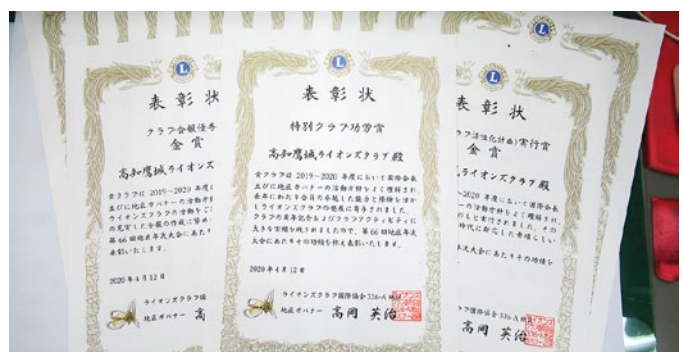 表彰状
クラブ会報優秀
金賞
高知鷹城ライオンズ
貴クラブは 2019~2020 年度に
並びに地区ガバナーの活動方針
ライオンズクラブの活動をご
の充実した会報の作成に努め
第66回地区年次大会にあた
表彰いたします。
2020年4月12日
ライオンズクラブ国
地区ガバナー 高
表彰状
特別クラブ功労賞
高知鷹城ライオンズクラブ殿
貴クラブは 2019~2020 年度において国際会長
並びに地区ガバナーの活動方針をよく理解され
長年にわたり会員の卓越した能力と経験を活か
しライオンズクラブの発展に寄与されました。
クラブの周年記念およびクラブアクティビティに
大きな実績を残されましたので、第66回地区年次
大会にあたりその功績を称え表彰いたします。
2020年4月12日
ライオンズクラブ国際協会336-A地区
地区ガバナー 高岡 英治
表彰状
クラブ活性化計画)実行賞
金賞
ライオンズクラブ殿
~2020 年度において国際会長
ーの活動方針をよく理解され、
のもと実行されました。その
時代に即応した素晴らしい
年次大会にあたりその功績を
ブ国際協会336-A地区
高岡 英治